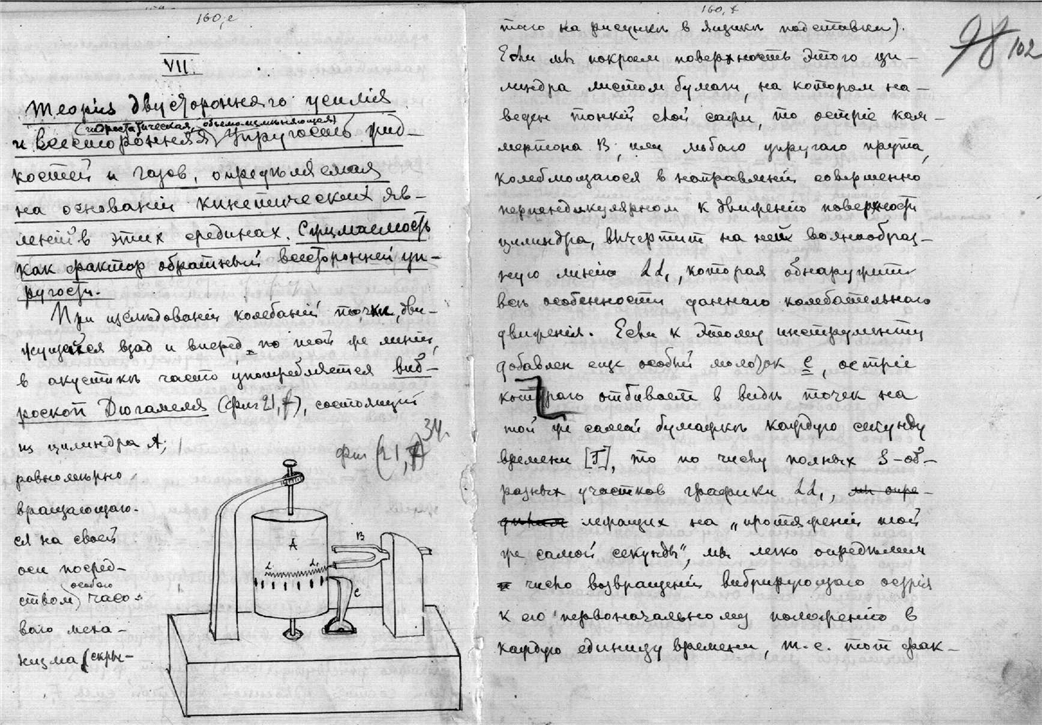 160, e
VII.
Теорія двусторонняго усилія
(гидростатическая, объемоизмѣняющая)
и всесторонняя упругость жид-
костей и газовъ, опредѣляемая
на основаніи кинетическихъ яв-
леній въ этихъ срединахъ. Сжимаемость
какъ факторъ обратный всесторонней уп-
ругости.
При изслѣдованіи колебаній точки, дви-
жущейся взад и вперед по той же линіи,
в акустикѣ часто употребляется виб-
роскоп Дюгамеля (фиг 21, f), состоящій
из цилиндра А,
равномѣрно
вращающаго-
ся на своей
оси посред-
ством (особаго) часо-
вого меха-
низма (скры-
фиг (21, f) 34.
A
B
L
L
c
160, f
98 102
того на рисункѣ в ящикѣ подставки).
Если мы покроем поверхность этого ци-
линдра листом бумаги, на котором на-
веден тонкій слой сажи, то остріе кам-
мертона B, или любаго упругаго прута,
колеблющагося в направленіи совершенно
перпендикулярном к движенію поверхности
цилиндра, вычертит на ней волнообраз-
ную линію LL, которая обнаружит
всѣ особенности даннаго колебательнаго
движенія. Если к этому инструменту
добавлен еще особый молоток c, остріе
котораго отбивает в видѣ точек на
той же самой бумажкѣ каждую секунду
времени [T], то по числу полных S-об-
разных участков графики LL,
лежащих на „протяженіи той
же самой секунды", мы легко опредѣлим
число возвращеній вибрирующаго острія
к его первоначальному положенію в
каждую единицу времени, т.е. тот фак-